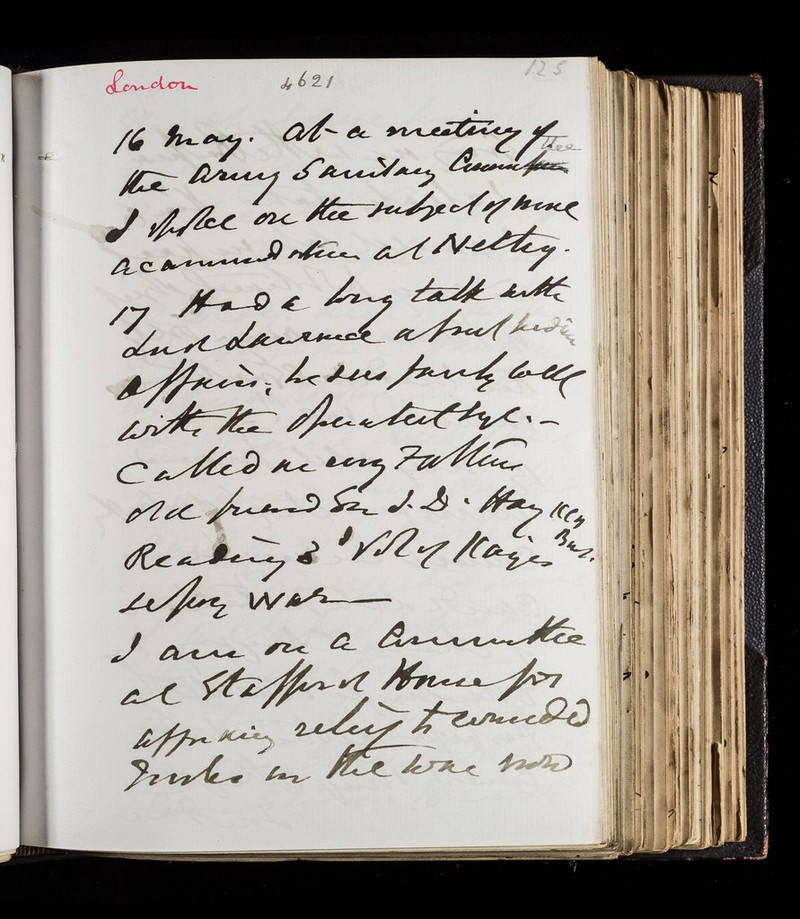 London 4621 125
16 May. At a meeting of
the Army Sanitary Committee
I spoke on the subject of more
accommodation at Netley.
17 Had a long talk with
Lord Lawrence about India
affairs; he sees fairly well
with the operated eye. -
Called on my
old friend Sir J. D. Hay KCB
Reading 3d Vol of Kayes
sepoy War
I am on a Committee
at Stafford House for
affording relief to wounded
Turks in the war now